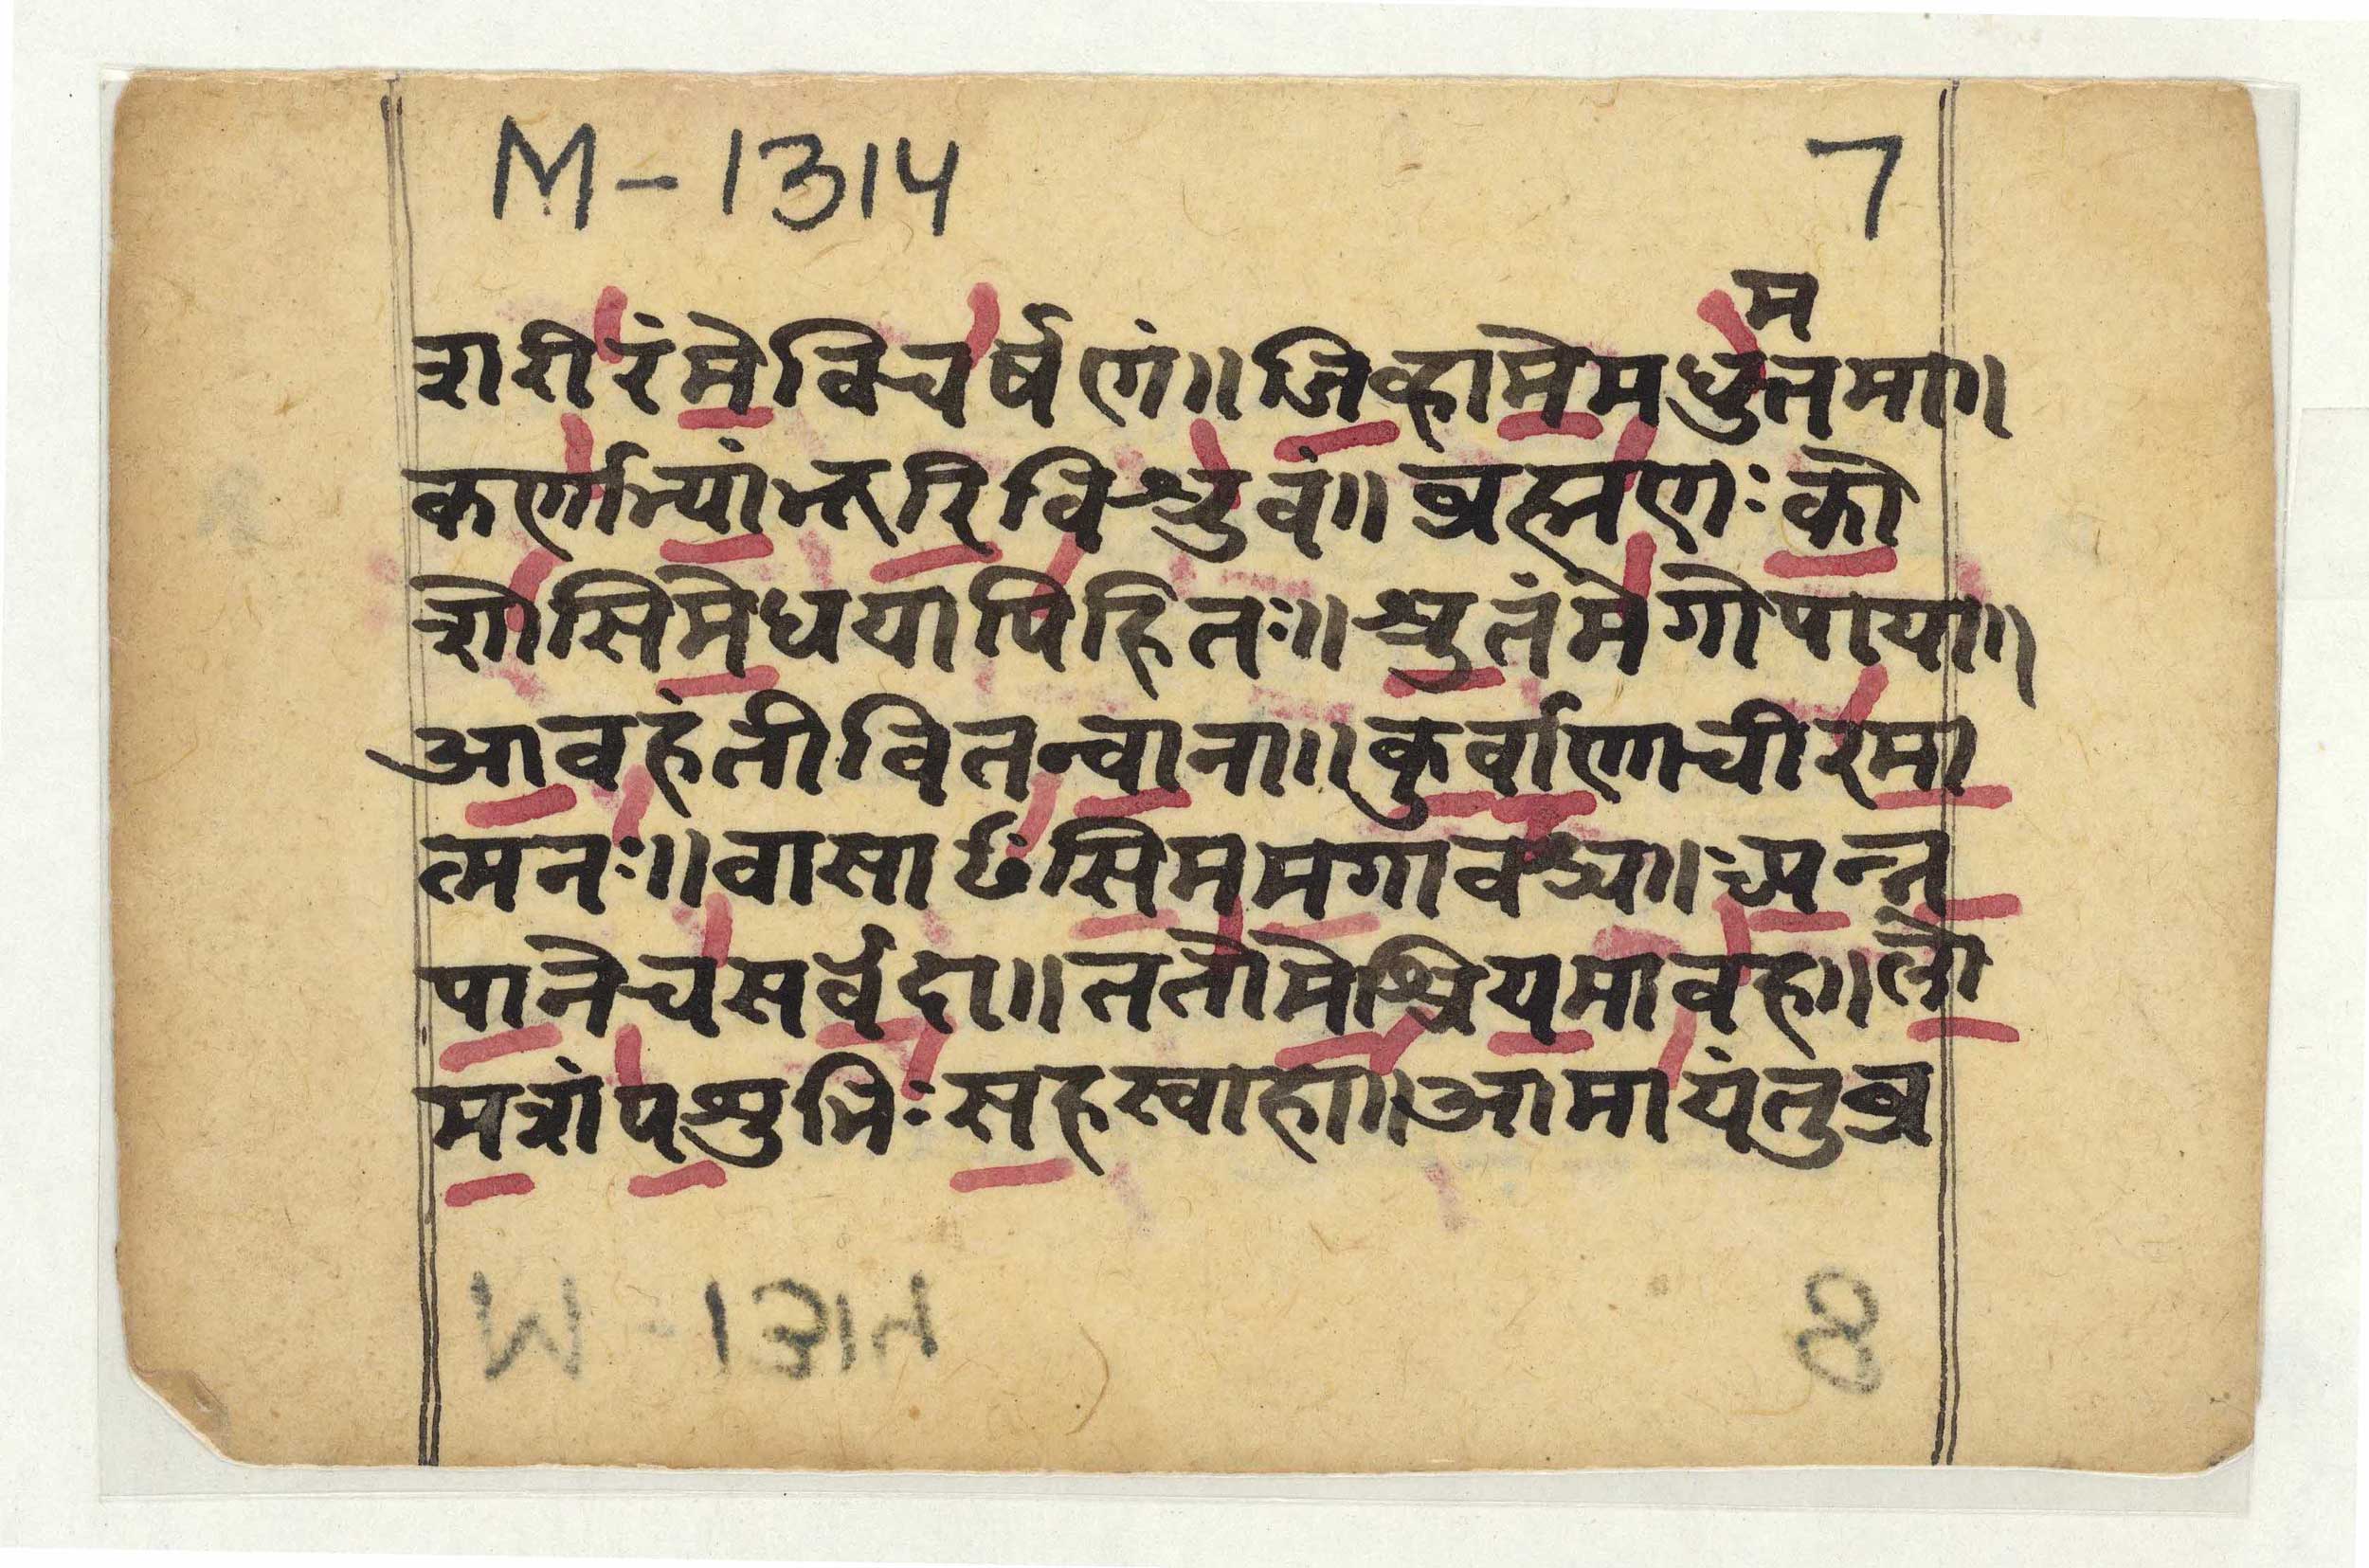 M-1314 7
म
शरीरंमेविचर्षणं॥जिव्हामेमधुतमा॥
कर्णाभ्यांभूरिविश्रुवं॥ब्रह्मणःको
शोसिमेधयापिहितः॥श्रुतंमेगोपाया॥
आवहंतीवितन्वाना॥कुर्वाणाचीरमा
त्मनः॥वासाꣳसिममगावश्च॥अन्न
पानेचसर्वदा॥ततोमेश्रियमावह॥लो
मशांपशुभिःसहस्वाहा॥आमायंतुब्र
M-1314 8